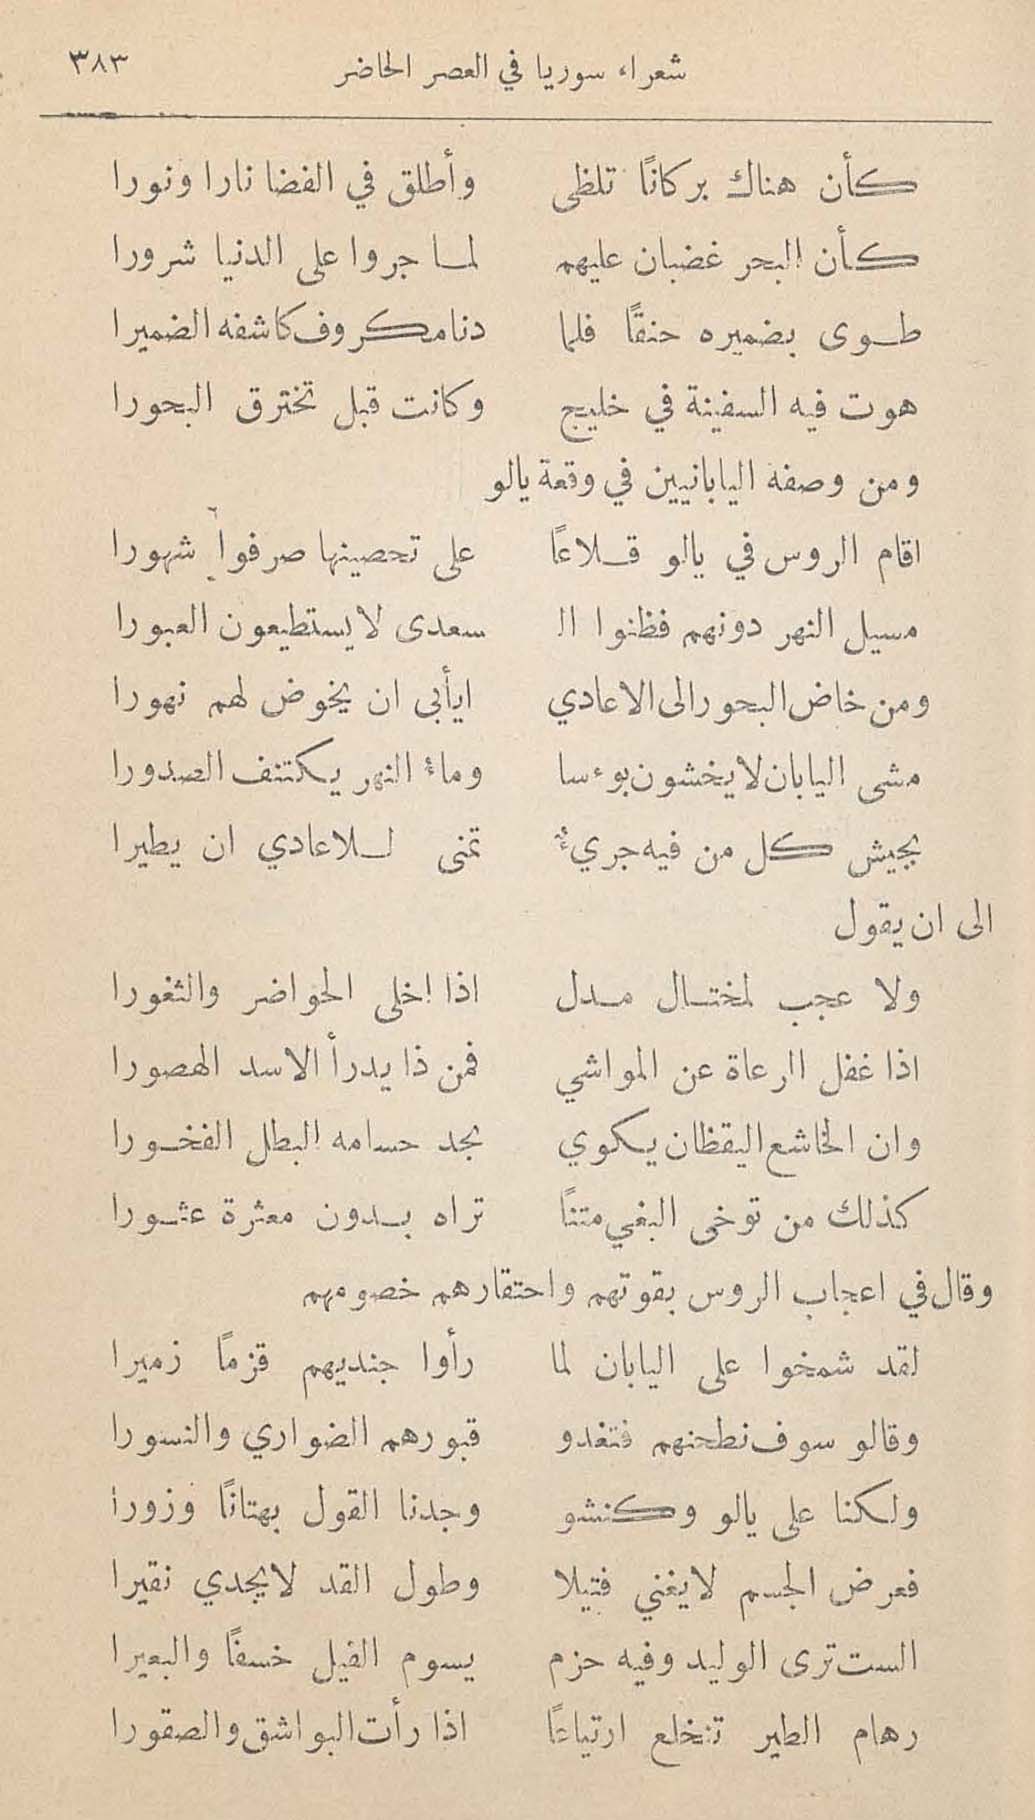 شعراء سوريا في العصر الحاضر ٣٨٣
كأن هناك بركانًا تلظى وأطلق في الفضا نارا ونورا
كأن البحر غضبان عليهم لما جروا على الدنيا شرورا
طوى بضميره حنقًا فلما دنا مكروف كاشفه الضميرا
هوت فيه السفينة في خليج وكانت قبل تخترق البحورا
ومن وصفه اليابانيين في وقعة يالو
اقام الروس في يالو قلاعًا على تحصينها صرفوا شهورا
مسيل النهر دونهم فظنوا ال سعدى لا يستطيعون العبورا
ومن خاض البحور الى الاعادي ايأبى ان يخوض لهم نهورا
مشى اليابان لا يخشون بوءسا وماء النهر يكتنف الصدورا
بجيش كل من فيه جريءٌ تمنى للاعادي ان يطيرا
الى ان يقول
ولا عجب لمختال مدل اذا اخلى الحواضر والثغورا
اذا غفل الرعاة عن المواشي فمن ذا يدرأ الاسد الهصورا
وان الخاشع اليقظان يكوي بجد حسامه البطل الفخورا
كذلك من توخى البغي متنًا تراه بدون معثرة عثورا
وقال في اعجاب الروس بقوتهم واحتقارهم خصومهم
لقد شمخوا على اليابان لما رأوا جنديهم قزمًا زميرا
وقالو سوف نطحنهم فتغدو قبورهم الضواري والنسورا
ولكنا على يالو وكنشو وجدنا القول بهتانًا وزورا
فعرض الجسم لا يغني فتيلا وطول القد لا يجدي نقيرا
الست ترى الوليد وفيه حزم يسوم الفيل خسفًا والبعيرا
رهام الطير تنخلع ارتياعًا اذا رأت البواشق والصقورا